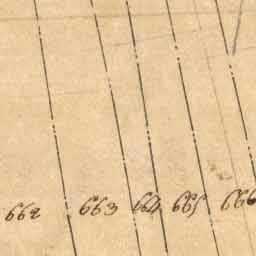 662 663 664 665 666